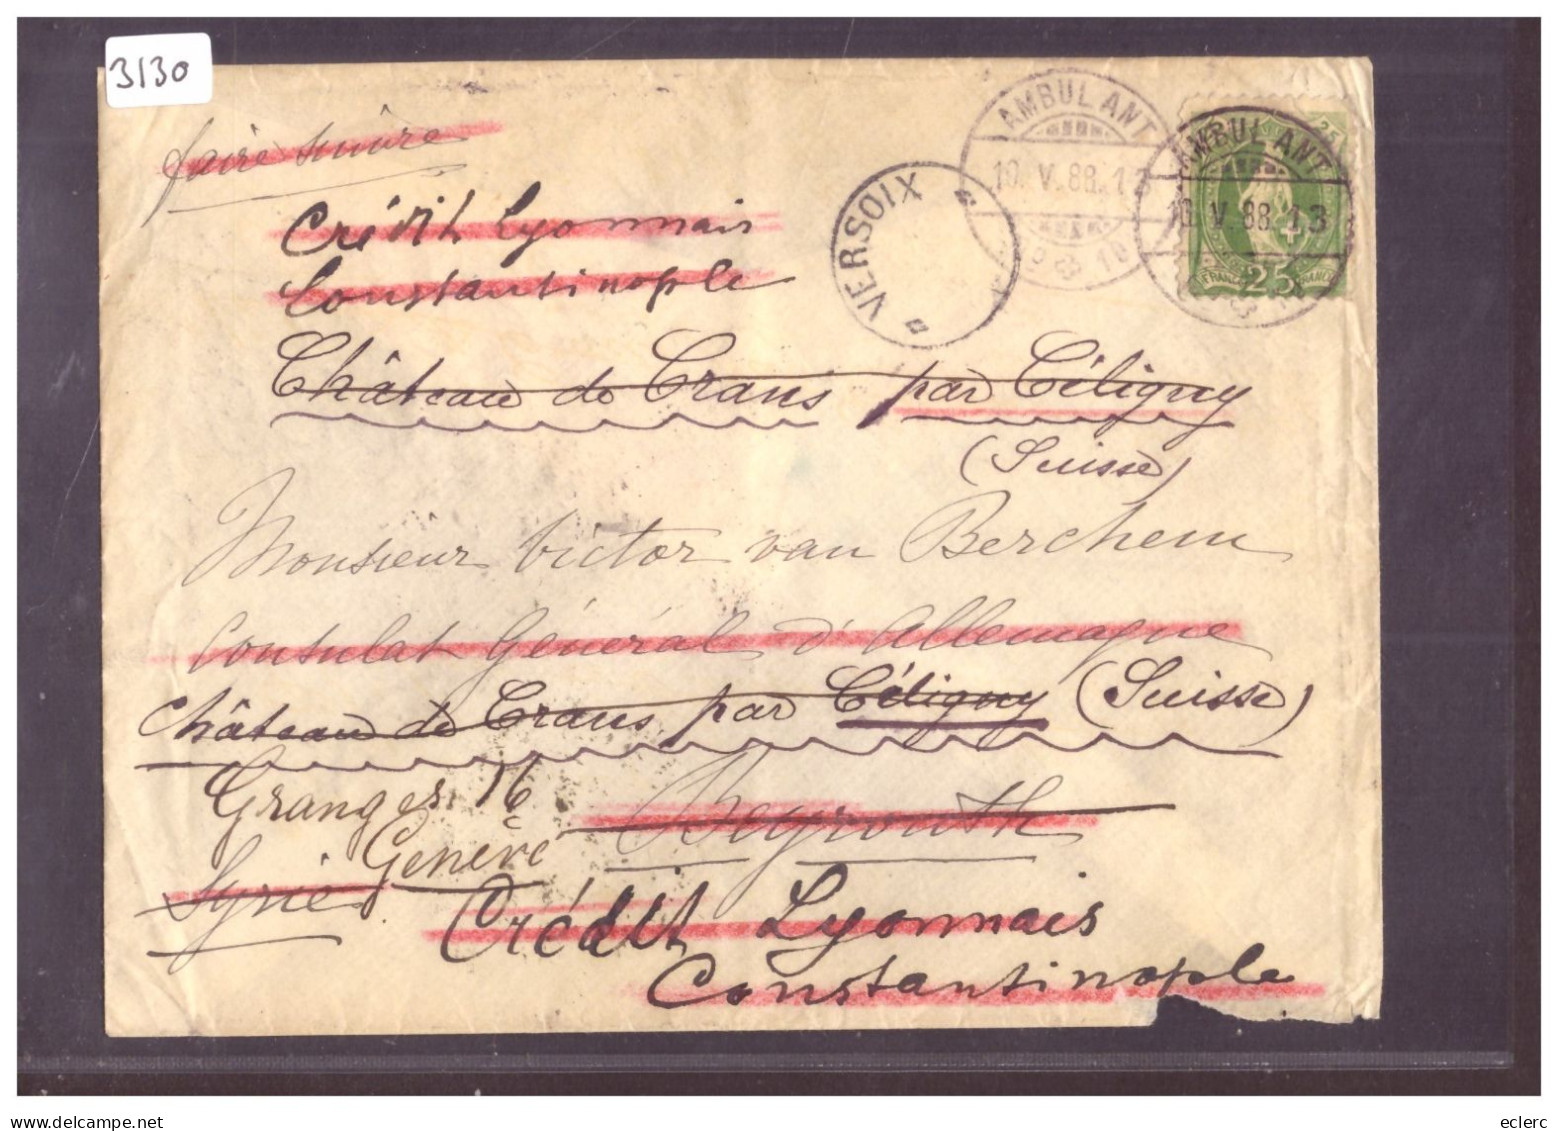 3130
faire suivre
AMBULANT
10. V. 88. 13
AMBULANT
10. V. 88. 13
VERSOIX
25
FRANCO
Crédit Lyonnais
Constantinople
Château de Crans par Céligny
(Suisse)
Monsieur Victor van Berchem
Consulat Général d'Allemagne
Château de Crans par Céligny (Suisse)
Granges 16
Beyrouth
Genève
Syrie
Crédit Lyonnais
Constantinople
delcampe.net
eclerc